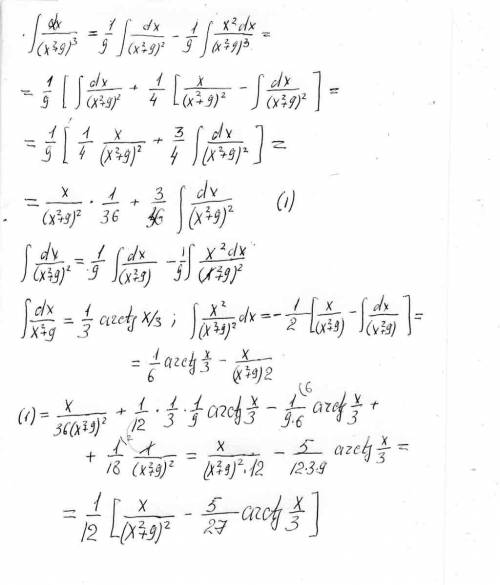 ∫ dx/(x²+9)³ = 1/9 ∫ dx/(x²+9)² - 1/9 ∫ x²dx/(x²+9)³ =
= 1/9 [ ∫ dx/(x²+9)² + 1/4 [ x/(x²+9)² - ∫ dx/(x²+9)² ] =
= 1/9 [ 1/4 x/(x²+9)² + 3/4 ∫ dx/(x²+9)² ] =
= x/(x²+9)² · 1/36 + 3/36 ∫ dx/(x²+9)² (1)
∫ dx/(x²+9)² = 1/9 ∫ dx/(x²+9) - 1/9 ∫ x²dx/(x²+9)²
∫ dx/x²+9 = 1/3 arctg x/3 ; ∫ x²/(x²+9)² dx = - 1/2 [ x/(x²+9) - ∫ dx/(x²+9) ] =
= 1/6 arctg x/3 - x/(x²+9)2
(1) = x/36(x²+9)² + 1/12 · 1/3 · 1/9 arctg x/3 - 1/9·6 arctg x/3 +
+ 1/18 x/(x²+9)² = x/(x²+9)²·12 - 5/12·3·9 arctg x/3 =
= 1/12 [ x/(x²+9)² - 5/27 arctg x/3 ]